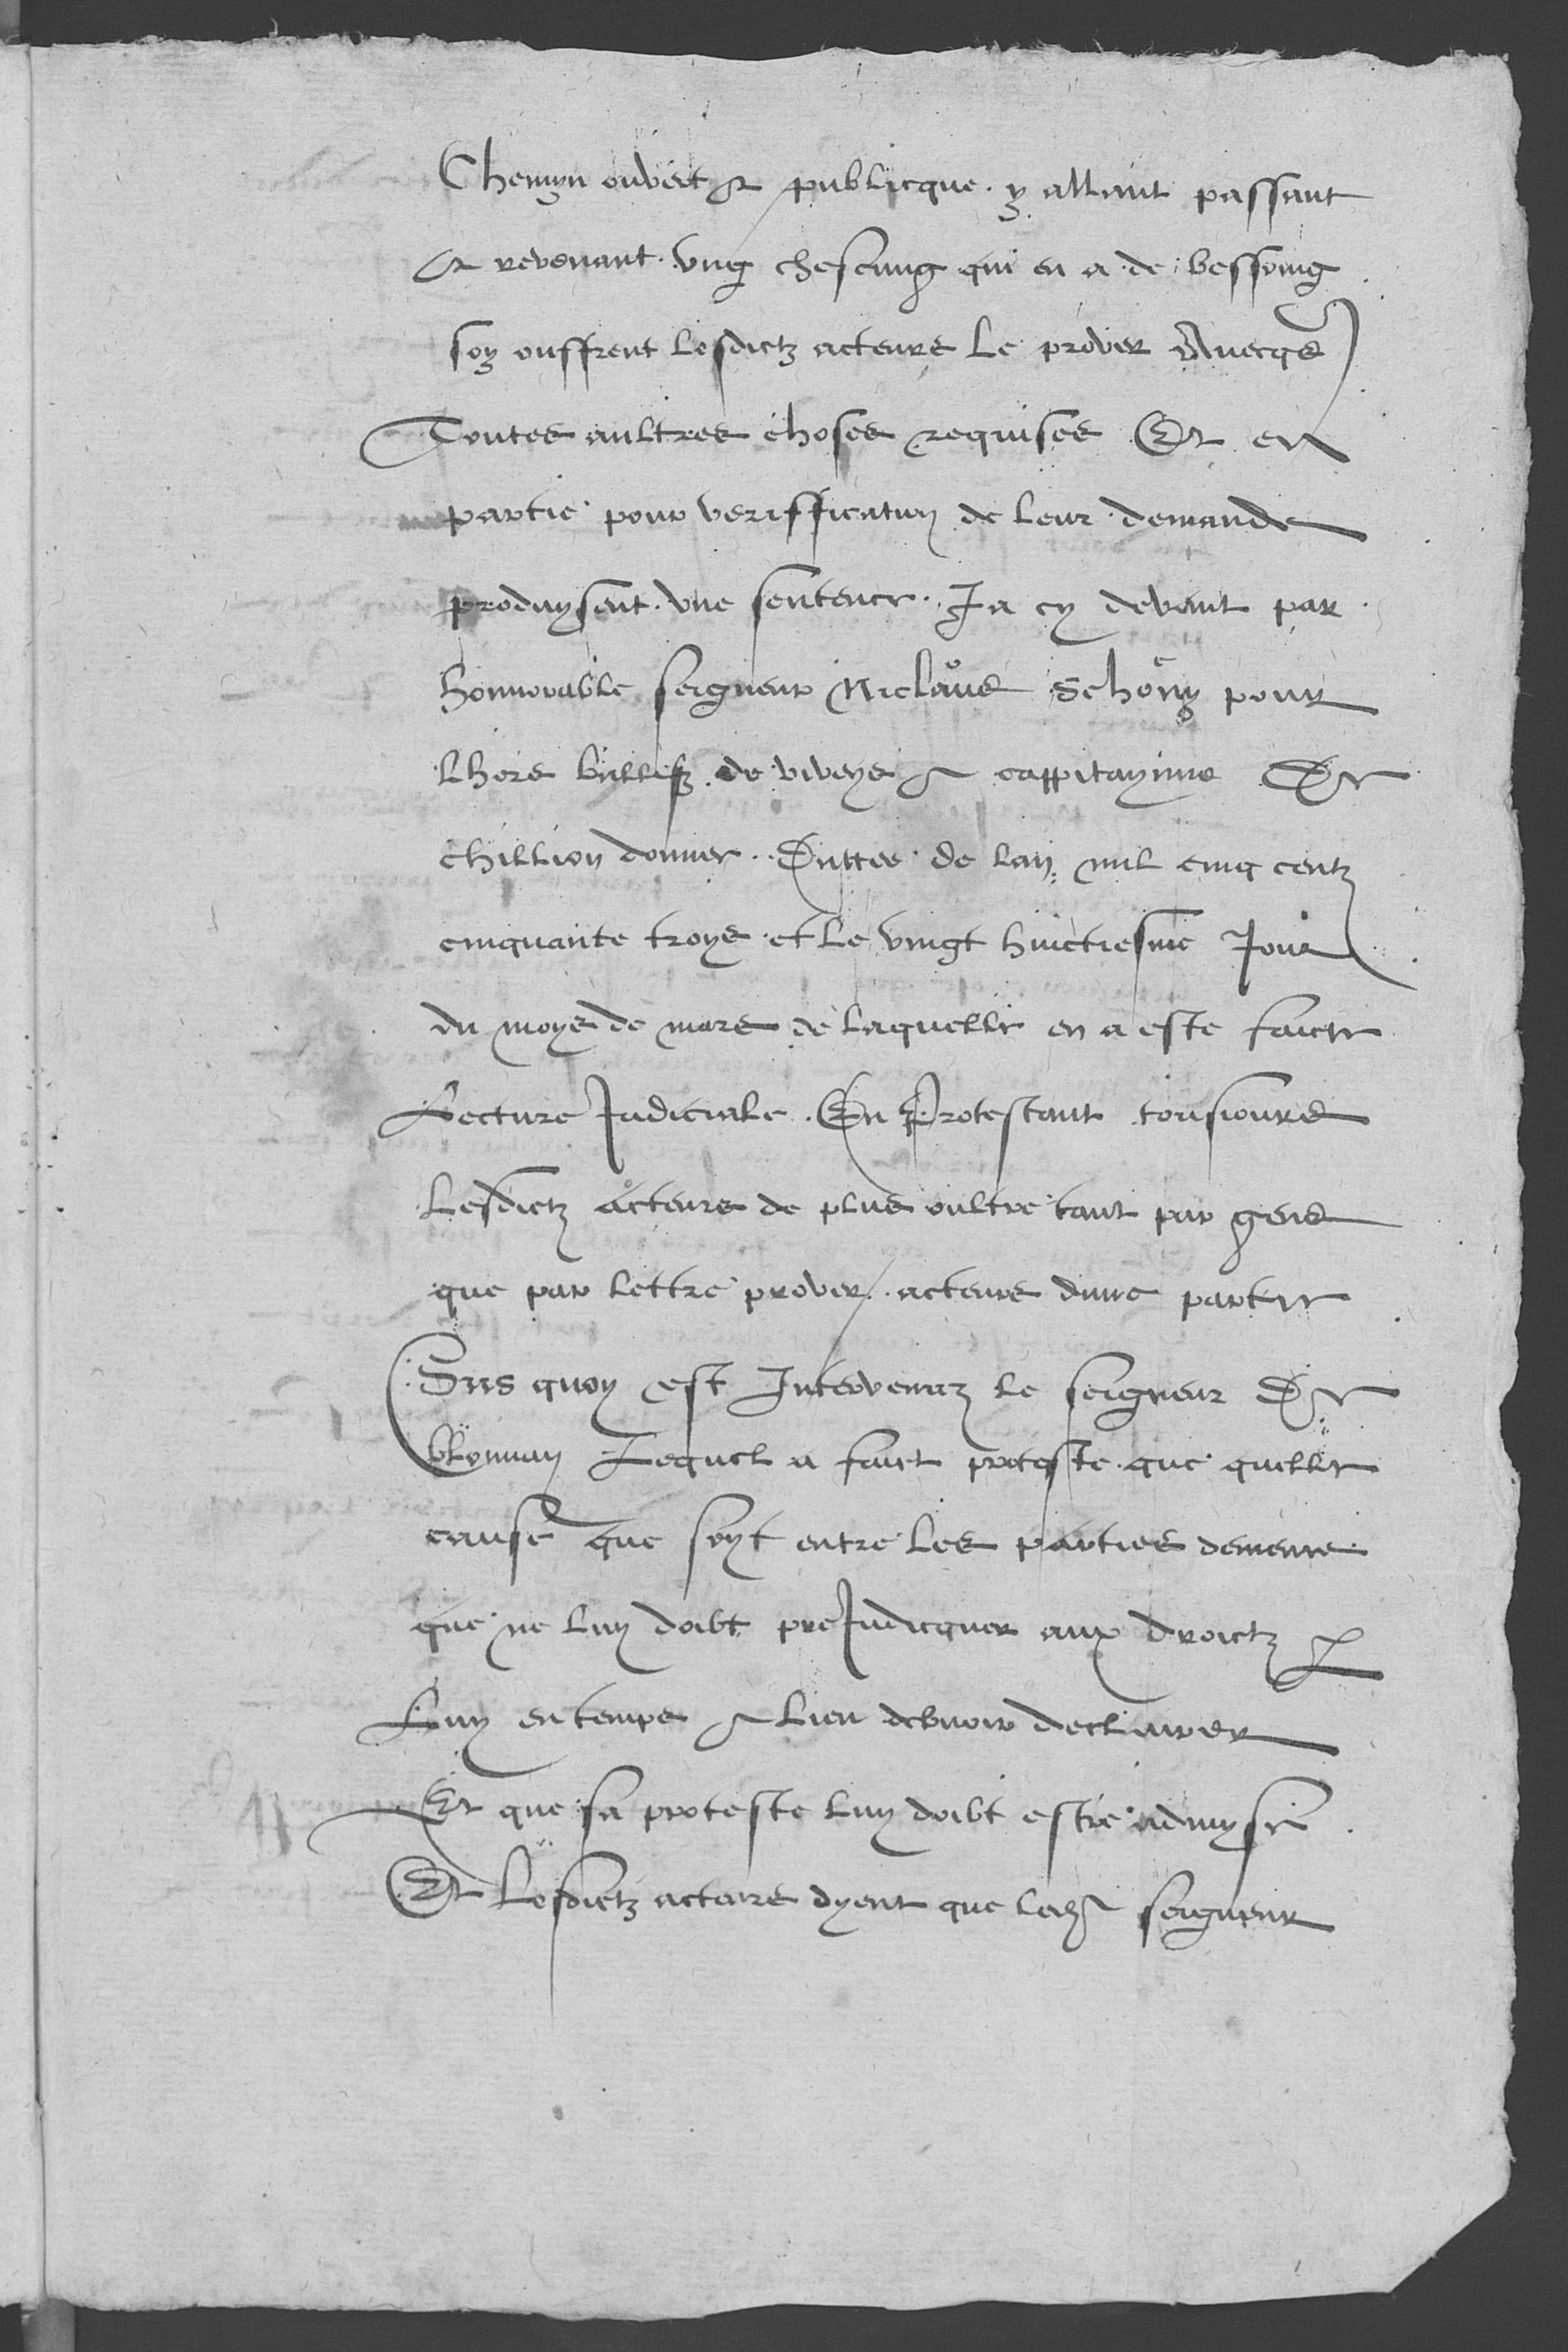 Chemyn ouvert et publicque y allant passant
et revenant ung chescung qui en a de bessoing
soy ouffrent lesdictz acteurs le prover Avecqs
Toutes aultres choses requises Et en
partie pour veriffication de leur demande
produysent une sentence Ja cy devant par
honnorable seigneur Niclaus Schöny pour
lhors ballifz de viveys et cappitayne De
chillion donner Dattee de lan mil cinq centz
cinquante troys et le vingt huictiesme Jour
du moys de mars de laquelle en a este faicte
Lecture Judiciale En Protestant tousiours
Lesdictz acteurs de plus oultre tant par gens
que par lettre prover acteurs dune partie
Sus quoy est Intervenuz le seigneur De
Lequel a faict proteste que quelle
cause que soyt entre les parties demenee
que ne luy doibt preJudicquer aux droictz
Luy en temps et lieu debvoir declairer
Et que sa proteste luy doibt estre admyse
Et Lesdictz acteurs dyent que ledt seigneur